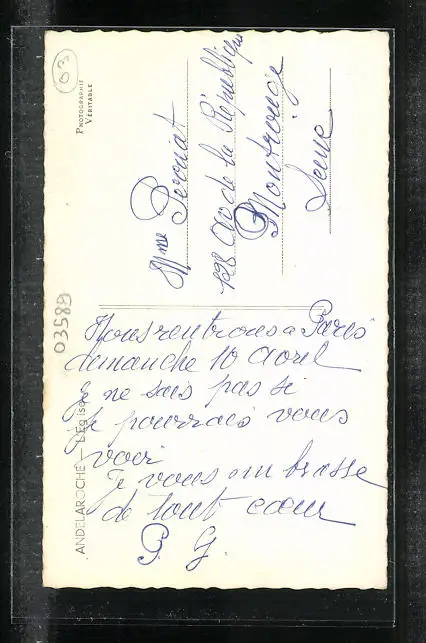 03
PHOTOGRAPHIE
VÉRITABLE
Mme Perriat
128 Av de la République
Montrouge
Seine
03589
ANDELAROCHE — L'Eglise
Nous rentrons a Paris
dimanche 10 Avril
Je ne sais pas si
Je pourrais vous
voir
Je vous embrasse
de tout cœur
P. G.